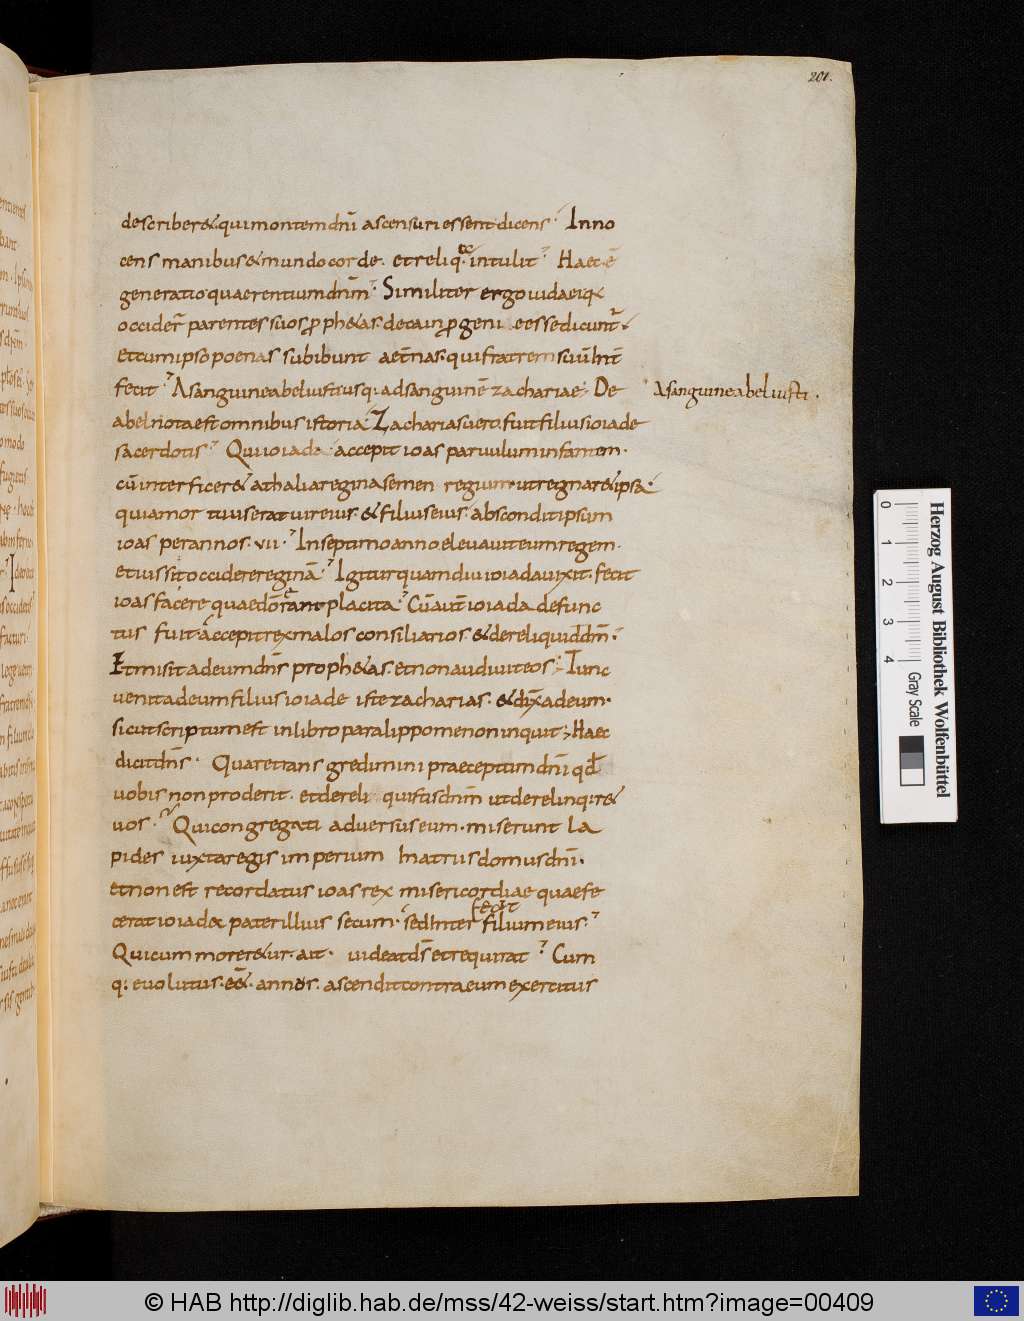 201.
describer& qui montem dnī ascensuri essent dicens. Inno
cens manibus & mundo corde. et reliq. &c intulit. Haec ē
generatio quaerentium dnm̄. Similiter ergo iudaei q
occider̄ parentes suos ꝓph&as de cain ꝓgeni e esse dicunt̄.
et cum ipso poenas subibunt aet̄nas. qui fratrem suū int̄
fecit. A sanguine abel iusti usq. ad sanguinē zachariae; De
A sanguine abel iusti.
abel nota est omnibus istoria. Zacharias uero. fuit filius ioiade
sacerdotis. Qui ioiada accepit ioas paruulum infantem.
cū interficer& athalia regina semen regium ut regnar& ipsa.
quia mortuus erat uir eius. & filius eius absconditipsum
ioas per annos. vii. In septimo anno eleuauit eum regem.
et iussit occidere reginā. Igitur quamdiu ioiada uixit. fecit
ioas facere quae dō erant placita. Cū aut̄ ioiada defunc
tus fuit. accepit rex malos consiliarios. & dereliquid dm̄.
Et misit ad eum dn̄s proph&as. et non audiuit eos; Tunc
uenit ad eum filius ioiade iste zacharias. & dix̄ ad eum.
sicut scriptum est in libro paralippomenon inquit; Haec
dicit dn̄s. Quare transgredimini praeceptum dnī qd̄
uobis non proderit. et dereli quistis dnm̄ ut derelinq:r&
uos. Qui congregati aduersus eum. miserunt la
pides iuxta regis imperium In atrius domus dnī.
et non est recordatus ioas rex misericordiae quae fe
cerat ioiade pater illius secum. sed inter fecit filium eius.
Qui cum morer&ur. ait. uideat ds̄ et requirat. Cum
q: euolutus. eē&. annos. ascendit contra eum exercitus
Herzog August Bibliothek Wolfenbüttel
0 1 2 3 4 Gray Scale
© HAB http://diglib.hab.de/mss/42-weiss/start.htm?image=00409